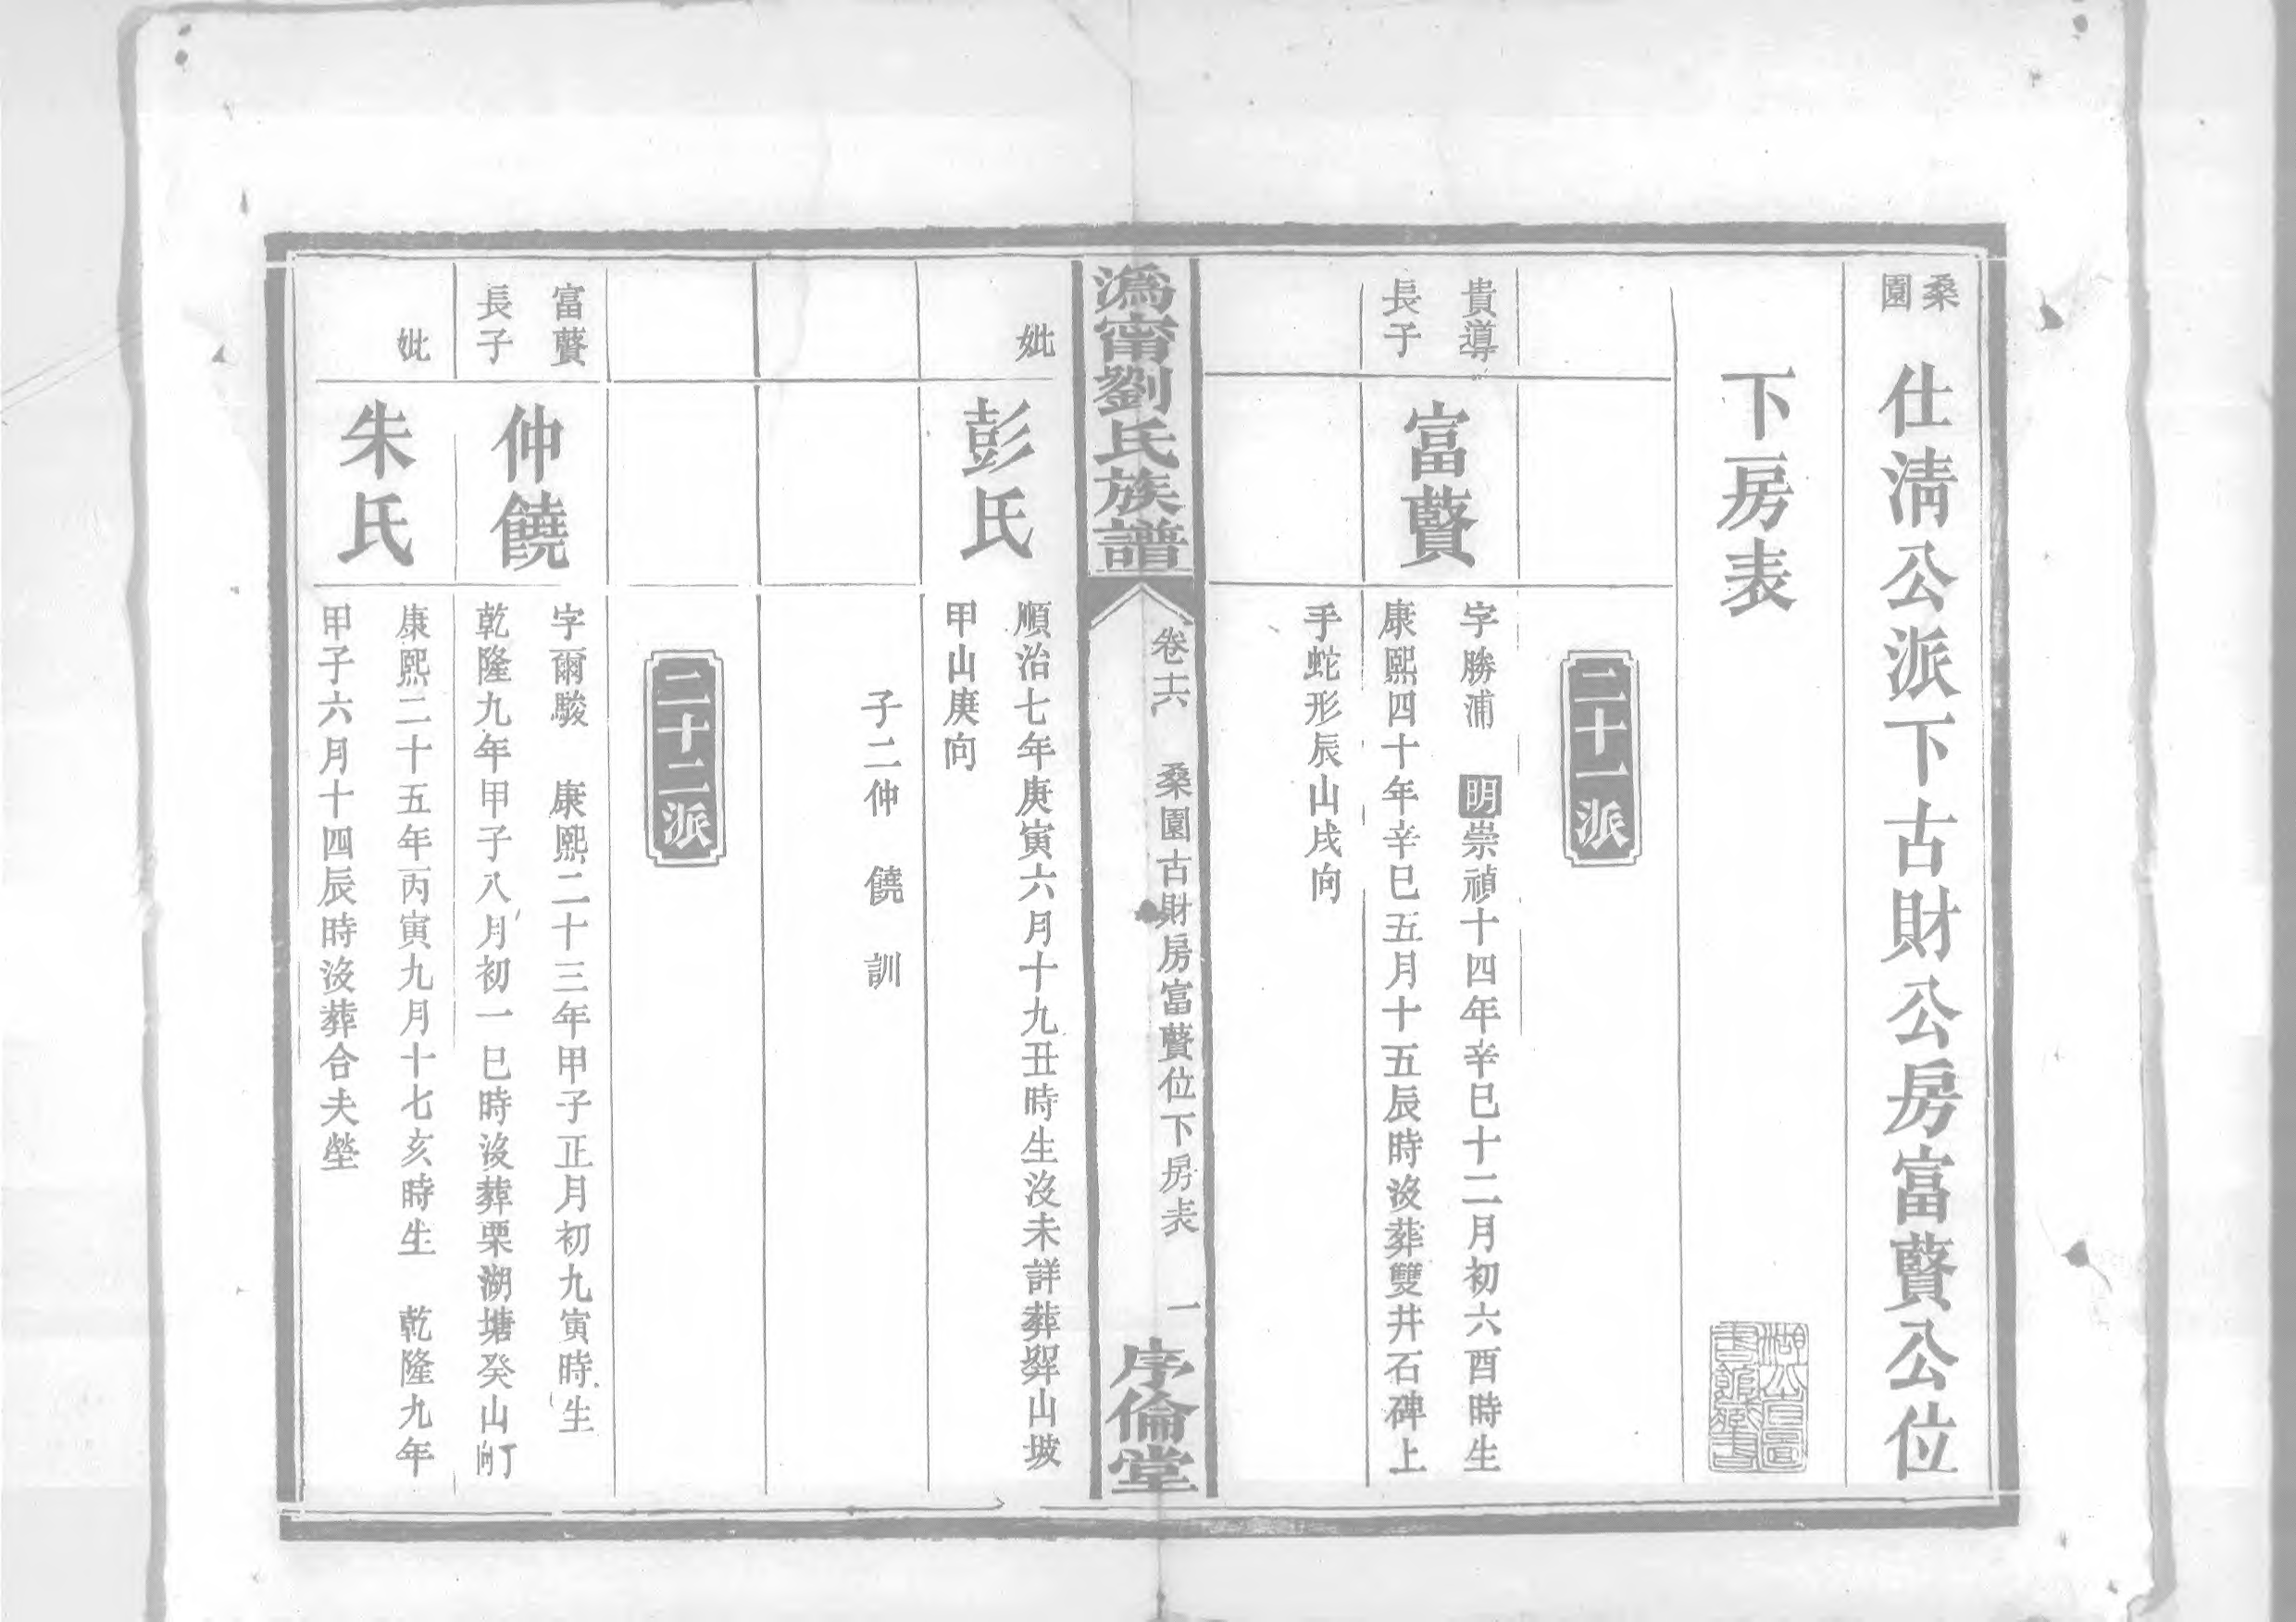 桑園
仕淸公派下古財公房富贒公位
下房表
二十一派
貴導
長子
富贒
字勝浦　明崇禎十四年辛巳十二月初六酉時生
康熙四十年辛巳五月十五辰時沒葬雙井石碑上
手蛇形辰山戌向
溈甯劉氏族譜
卷十六　桑園古財房富贒位下房表　一
序倫堂
妣
彭氏
順治七年庚寅六月十九丑時生沒未詳葬羿山坡
甲山庚向
子二仲　饒　訓
二十二派
富贒
長子
仲饒
字爾駿　康熙二十三年甲子正月初九寅時生
乾隆九年甲子八月初一巳時沒葬栗湖塘癸山丁向
妣
朱氏
康熙二十五年丙寅九月十七亥時生　乾隆九年
甲子六月十四辰時沒葬合夫塋